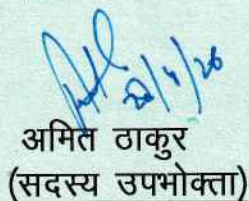 20/4/26
अमित ठाकुर
(सदस्य उपभोक्ता)